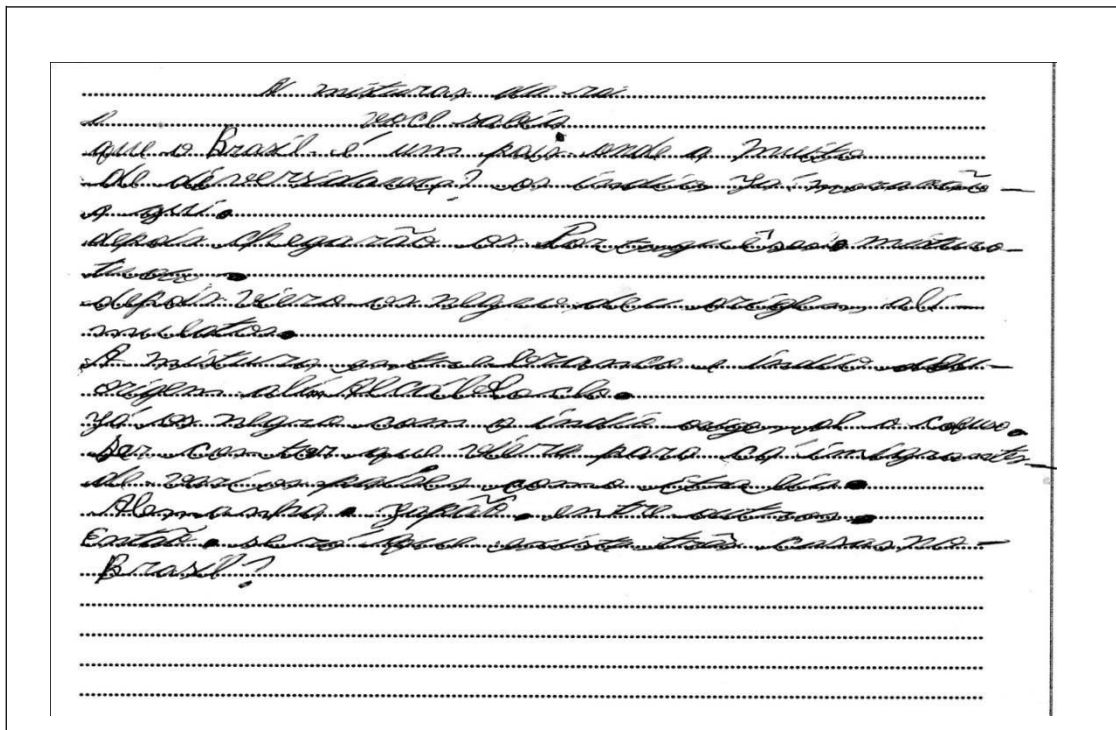 A misturas da ra
você sabia
que o Brasil é um pais onde a muito
de diversidade? os índios já moravão
a qui.
depois chegarão os Portuguêses mistura
depois viero os negro, deu origem, ali
mulatos.
A mistura entre branco e índio deu
origem ali Al Cáboclo.
já os negro com o índio o Cafuso.
Ser con tar que viere para cá imigrantes
de varios países como italia.
Alemanha. Japão. entre outros.
Então. será que existe três no
Brasil?